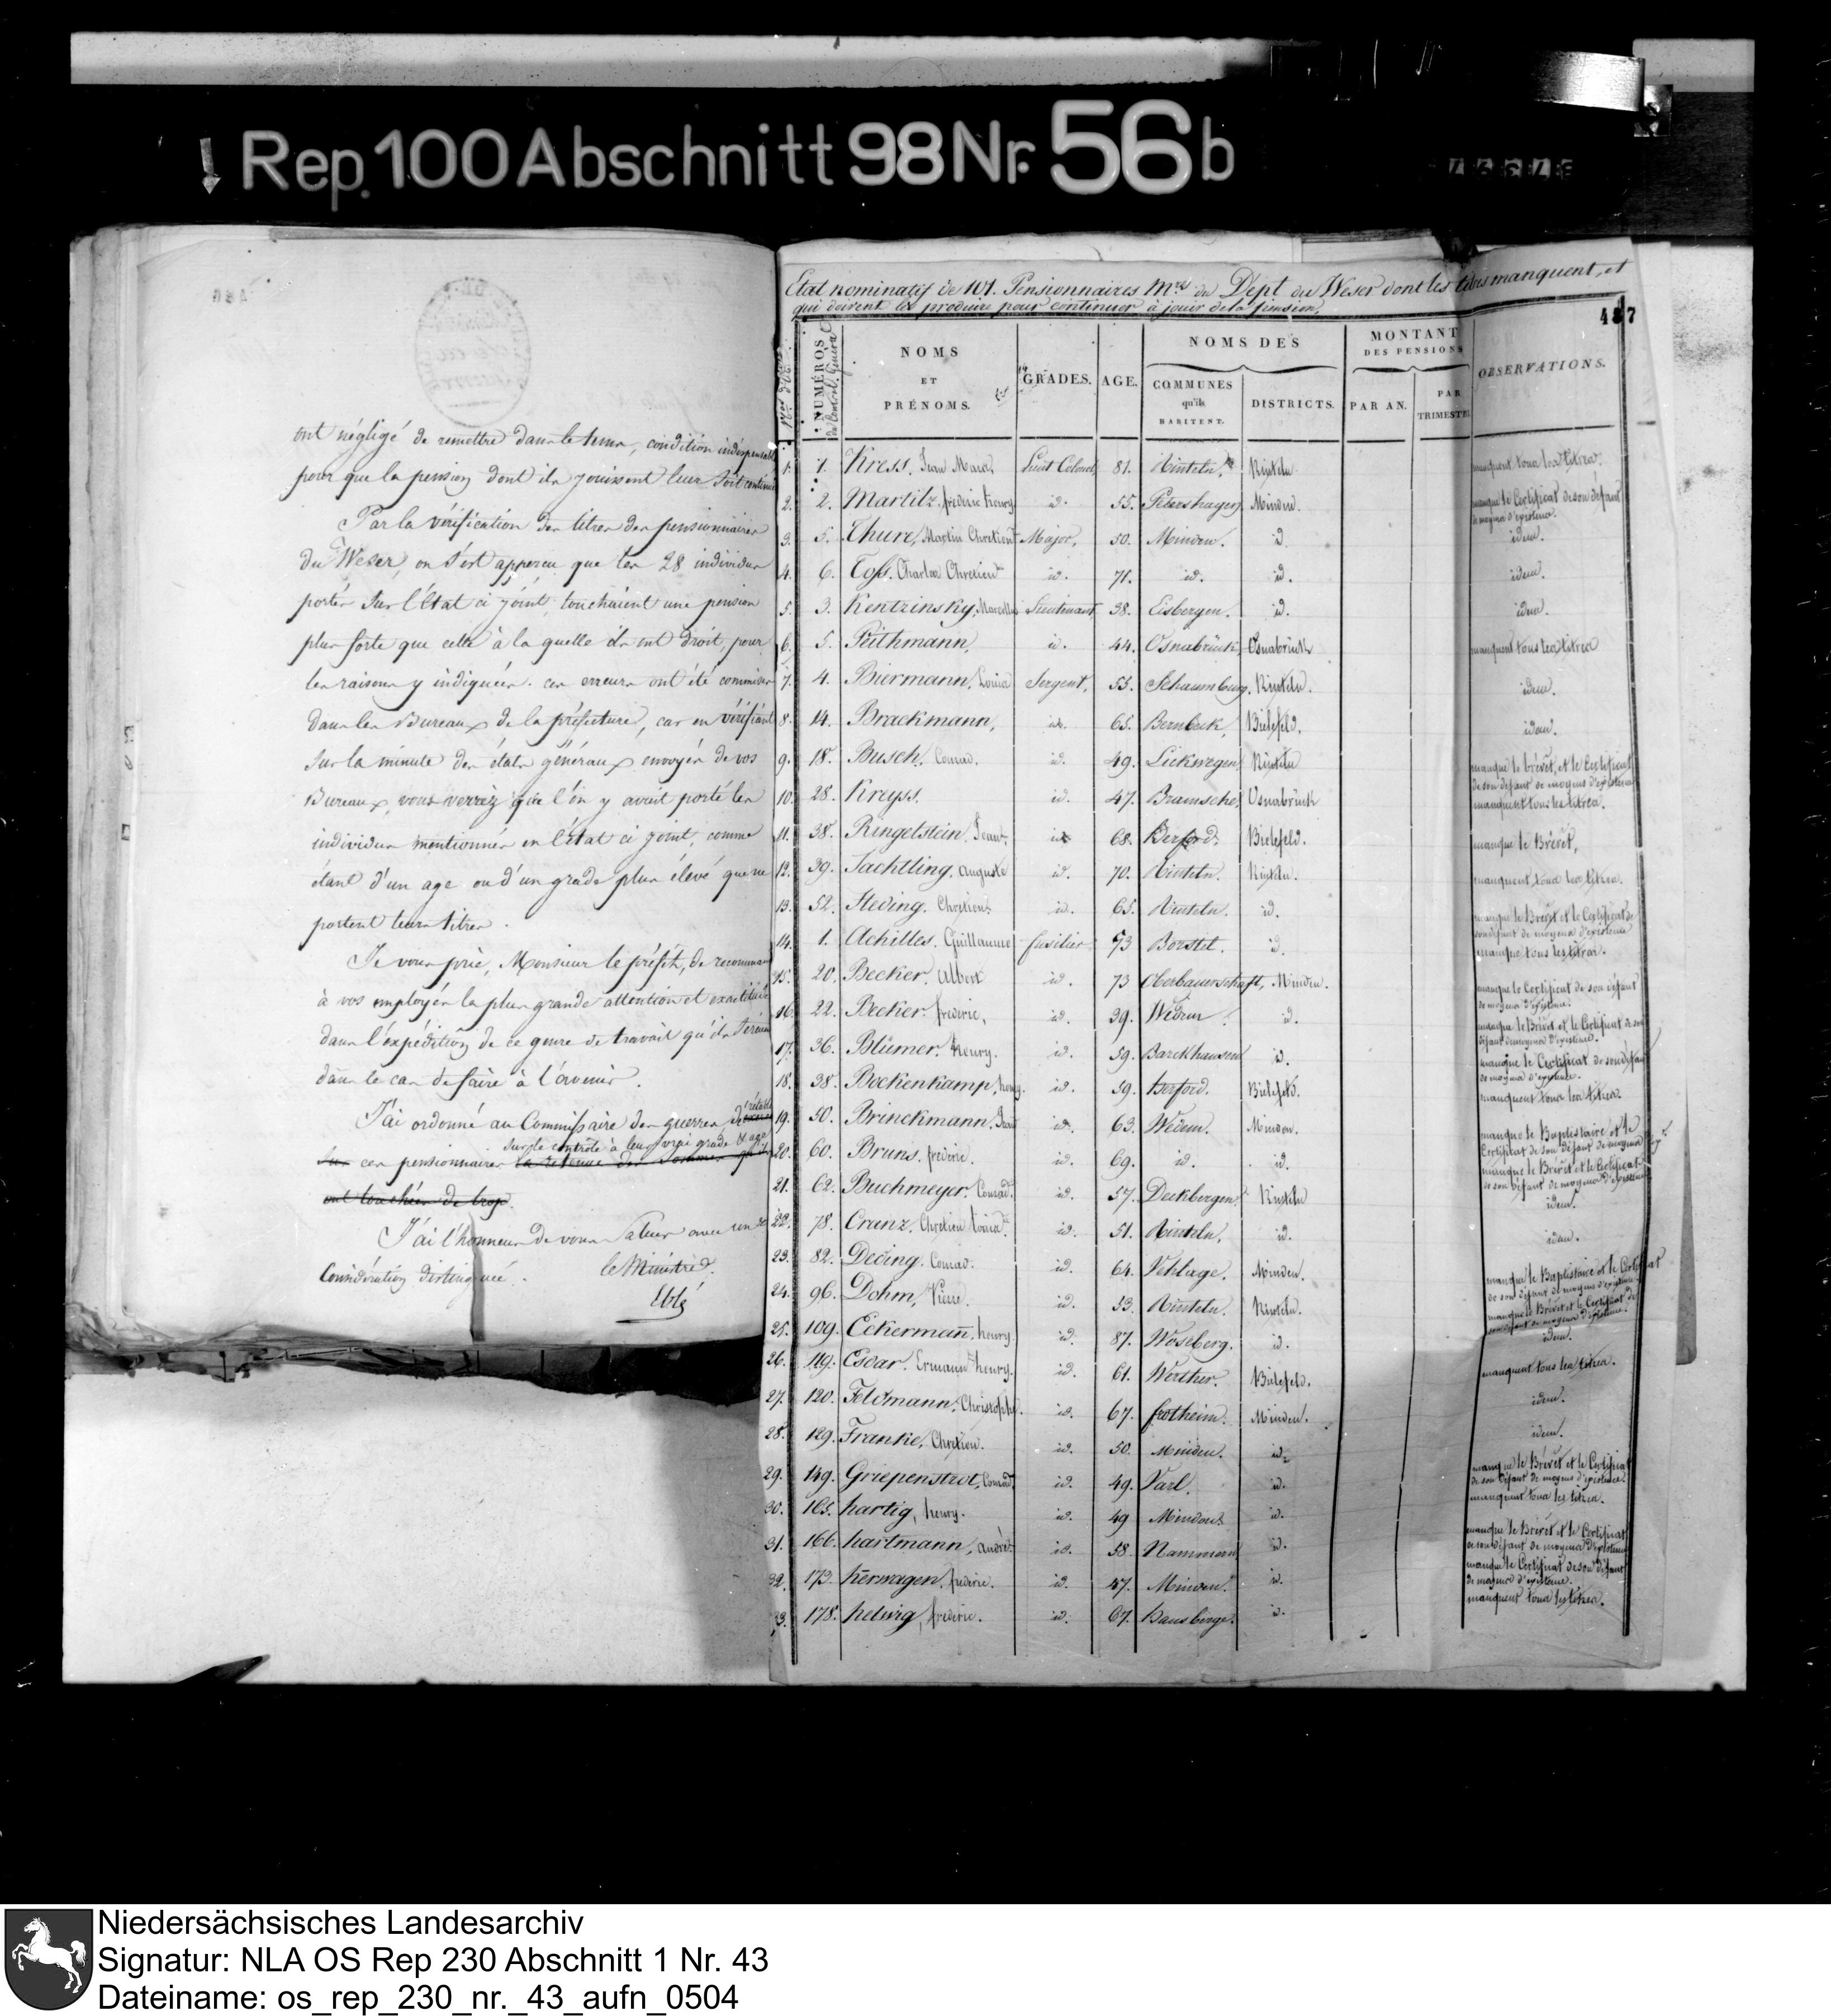 Rep. 100 Abschnitt 98 Nr. 56 b
ont négligé de remettre dans le tems, condition indispensable
pour que la pension dont ils jouissent leur soit continuée
Par la vérification des titres des pensionnaires
du Weser, on s'est apperçu que les 28 individus
portés sur l'État ci joint, touchaient une pension
plus forte que celle à la quelle ils ont droit, pour
les raisons y indiquées. ces erreurs ont été commises
dans les Bureaux de la préfecture, car en vérifiant
sur la minute des états généraux envoyés de vos
Bureaux, vous verrez que l'on y avait porté les
individus mentionnés en l'état ci joint, comme
étant d'un age ou d'un grade plus élevé que ne
portent leurs titres.
Je vous prie, Monsieur le préfet, de recommander
à vos employés la plus grande attention et exactitude
dans l'expédition de ce genre de travail qu'ils seront
dans le cas de faire à l'avenir.
J'ai ordonné au Commissaire des guerres de rétablir
sur le contrôle à leur vrai grade & age
sur ces pensionnaires la retenue des sommes qu'ils
ont touchées de trop.
J'ai l'honneur de vous saluer avec une
Considération distinguée.
le Ministre
Eblé
Etat nominatif de 101. Pensionnaires Mres du Dépt du Weser dont les titres manquent, et
qui doivent les produire pour continuer à jouir de la pension.
487
NUMÉROS du Control. Général NOMS ET PRÉNOMS. GRADES. AGE. NOMS DES COMMUNES qu'ils HABITENT. DISTRICTS. MONTANT DES PENSIONS PAR AN. PAR TRIMESTRE. OBSERVATIONS.
1. 1. Kress, Jean Marc, Lieut Colonel, 81. Rinteln, Rinteln. manquent tous les titres.
2. 2. Martitz, frédéric henry id. 55. Petershagen, Minden. manque le Certificat de son défaut de moyens d'existence.
3. 5. Thure, Martin Chretien Major, 50. Minden. id. idem.
4. 6. Toss, Charles Chretien id. 71. id. id. idem.
5. 3. Kentzinsky, Marcellus Lieutenant, 38. Eisbergen. id. idem.
6. 5. Püthmann, id. 44. Osnabrück, Osnabrück manquent tous les titres
7. 4. Biermann, Louis Sergent, 53. Schaumburg, Rinteln. idem.
8. 14. Brackmann, id. 65. Bernbeck, Bielefeld. idem.
9. 18. Busch, Conrad. id. 49. Liekwegen, Rinteln manque le brévet, et le Certificat de son défaut de moyens d'existence
10. 28. Kreyss. id. 47. Bramsche, Osnabrück manquent tous les titres.
11. 38. Ringelstein, Jean, id. 68. Herford. Bielefeld. manque le Brévet,
12. 39. Sachtling, auguste id. 70. Rinteln. Rinteln. manquent tous les titres.
13. 52. Steding, Chrétien. id. 65. Rinteln. id. manque le Brévet et le Certificat de son défaut de moyens d'existence
14. 1. Achilles, Guillaume fusilier 73 Borstel. id. manque tous les titres.
15. 20. Becker, Albert id. 73 Oberbauerschaft, Minden. manque le Certificat de son défaut de moyens d'existence.
16. 22. Becker, frédéric, id. 39. Wedem. id. manque le Brévet et le Certificat de son défaut de moyens d'existence.
17. 36. Blümer, henry. id. 59. Barckhausen id. manque le Certificat de son défaut de moyens d'existence.
18. 38. Bockenkamp, henry. id. 59. herford. Bielefeld. manquent tous les titres
19. 50. Brinckmann, id. 63. Wedem. Minden. manque le Baptistaire et le Certificat de son défaut de moyens
20. 60. Bruns, frédéric. id. 69. id. id. manque le Brévet et le Certificat de son défaut de moyens d'existence
21. 62. Buchmeyer, Conrad. id. 57. Deckbergen, Rinteln idem.
22. 78. Cranz, Chrétien Louis. id. 51. Rinteln, id. idem.
23. 82. Deding, Conrad. id. 64. Vehlage. Minden. manque le Baptistaire et le Certificat de son défaut de moyens d'existence
24. 96. Dohm, Pierre. id. 53. Rinteln. Rinteln. manque le Brévet et le Certificat de son défaut de moyens d'existence.
25. 109. Eckermann, henry. id. 87. Wöseberg. id. idem.
26. 119. Esdar, Ermann henry. id. 61. Werther. Bielefeld. manquent tous les titres.
27. 120. Feldmann, Christophe. id. 67. frotheim. Minden. idem.
28. 129. Franke, Chrétien. id. 50. Minden. id. idem.
29. 149. Griepenstrot, Conrad. id. 49. Varl. id. manque le Brévet et le Certificat de son défaut de moyens d'existence.
30. 165. hartig, henry. id. 49 Minden. id. manquent tous les titres.
31. 166. hartmann, andré. id. 58. Nammen id. manque le Brévet et le Certificat de son défaut de moyens d'existence
32. 173. herwagen, frédéric. id. 47. Minden. id. manque le Certificat de son défaut de moyens d'existence.
33. 178. helwig, frédéric. id. 67. hausberge. id. manquent tous les titres.
Niedersächsisches Landesarchiv
Signatur: NLA OS Rep 230 Abschnitt 1 Nr. 43
Dateiname: os_rep_230_nr._43_aufn_0504